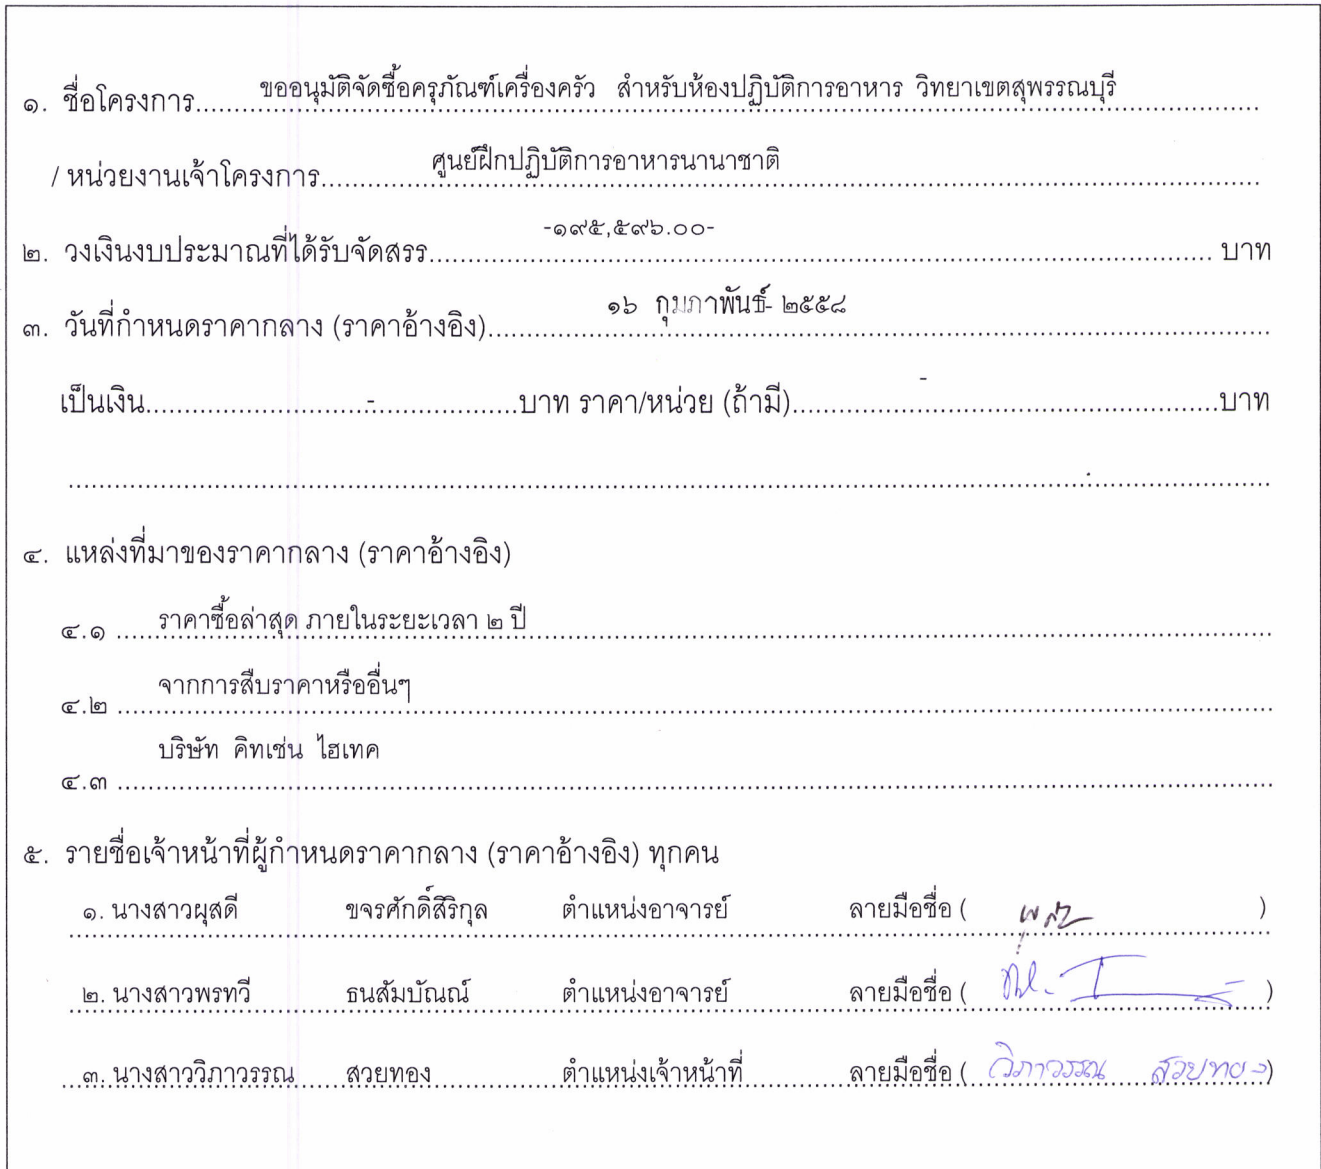 ๑. ชื่อโครงการ.....ขออนุมัติจัดซื้อครุภัณฑ์เครื่องครัว สำหรับห้องปฏิบัติการอาหาร วิทยาเขตสุพรรณบุรี.....
/ หน่วยงานเจ้าโครงการ.....ศูนย์ฝึกปฏิบัติการอาหารนานาชาติ.....
๒. วงเงินงบประมาณที่ได้รับจัดสรร.....-๑๙๕,๕๙๖.๐๐-..... บาท
๓. วันที่กำหนดราคากลาง (ราคาอ้างอิง).....๑๖ กุมภาพันธ์- ๒๕๕๘.....
เป็นเงิน.....-.....บาท ราคา/หน่วย (ถ้ามี).....-.....บาท
๔. แหล่งที่มาของราคากลาง (ราคาอ้างอิง)
๔.๑ .....ราคาซื้อล่าสุด ภายในระยะเวลา ๒ ปี.....
๔.๒ .....จากการสืบราคาหรืออื่นๆ.....
๔.๓ .....บริษัท คิทเช่น ไฮเทค.....
๕. รายชื่อเจ้าหน้าที่ผู้กำหนดราคากลาง (ราคาอ้างอิง) ทุกคน
๑. นางสาวผุสดี ขจรศักดิ์สิริกุล ตำแหน่งอาจารย์ ลายมือชื่อ ( )
๒. นางสาวพรทวี ธนสัมบัณณ์ ตำแหน่งอาจารย์ ลายมือชื่อ ( )
๓. นางสาววิภาวรรณ สวยทอง ตำแหน่งเจ้าหน้าที่ ลายมือชื่อ ( วิภาวรรณ สวยทอง )